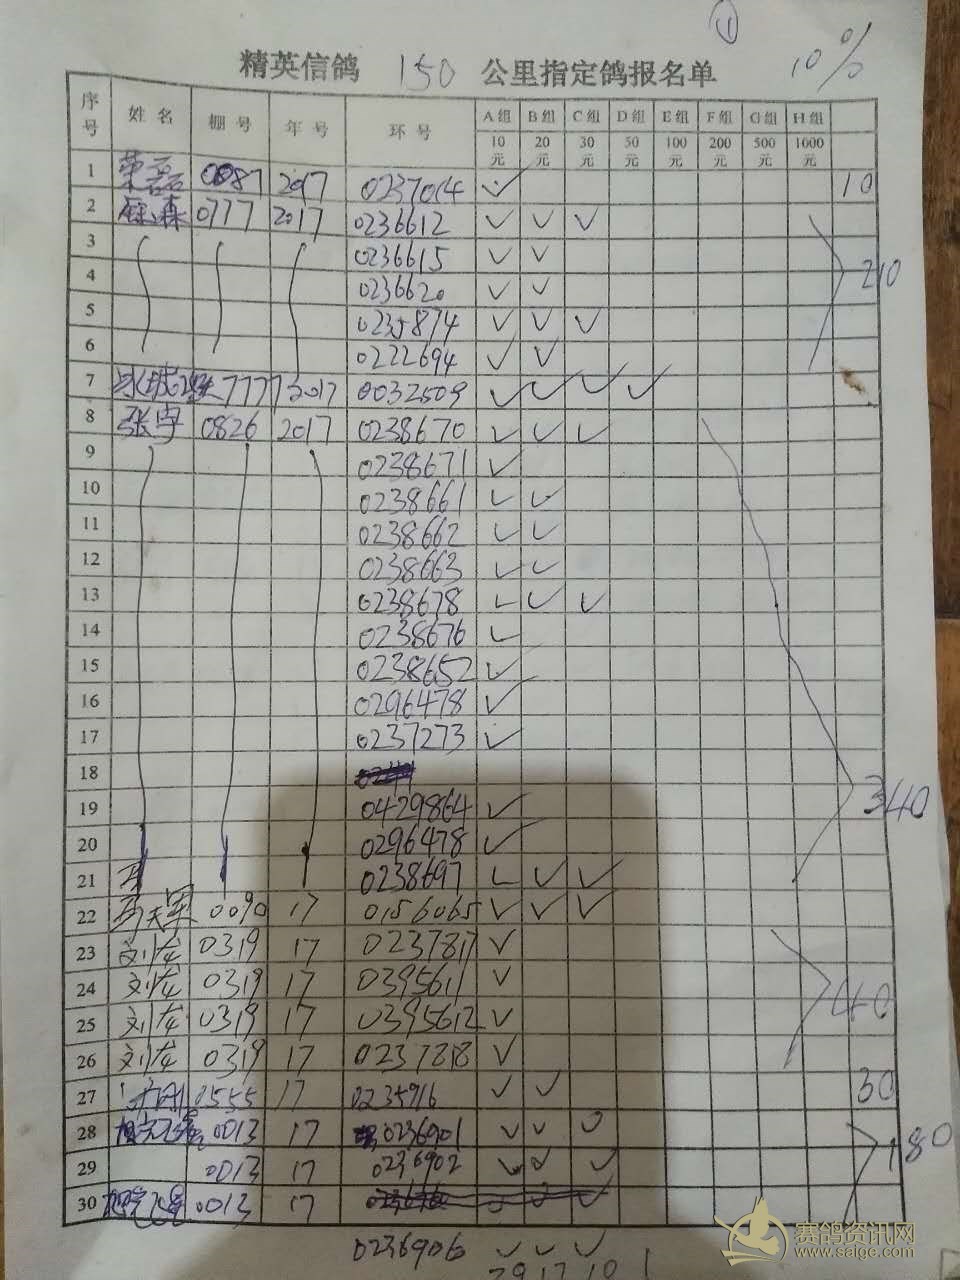 ①
10%
精英信鸽 150 公里指定鸽报名单
序号 姓名 棚号 年号 环号 A组 B组 C组 D组 E组 F组 G组 H组
10元 20元 30元 50元 100元 200元 500元 1000元
1 荣磊 0087 2017 0237014 ✓ 10
2 森 0777 2017 0236612 ✓ ✓ ✓
3 0236615 ✓ ✓
4 0236620 ✓ ✓ 210
5 0235874 ✓ ✓ ✓
6 0222694 ✓ ✓
7 冰城 7777 2017 0032509 ✓ ✓ ✓ ✓
8 张宇 0826 2017 0238670 ✓ ✓ ✓
9 0238671 ✓
10 0238661 ✓ ✓
11 0238662 ✓ ✓
12 0238663 ✓ ✓
13 0238678 ✓ ✓ ✓
14 0238676 ✓
15 0238652 ✓
16 0296478 ✓
17 0237273 ✓
18
19 0429864 ✓ 340
20 0296478 ✓
21 0238697 ✓ ✓ ✓
22 马天军 0090 17 0156065 ✓ ✓ ✓
23 刘龙 0319 17 0237817 ✓
24 刘龙 0319 17 0395611 ✓ 40
25 刘龙 0319 17 0395612 ✓
26 刘龙 0319 17 0237818 ✓
27 0555 17 0235916 ✓ ✓ 30
28 0013 17 0236901 ✓ ✓ 180
29 0013 17 0236902 ✓ ✓ ✓
30 0013 17
0236906 ✓ ✓ ✓
29 17 10 1
赛鸽资讯网
www.saige.com